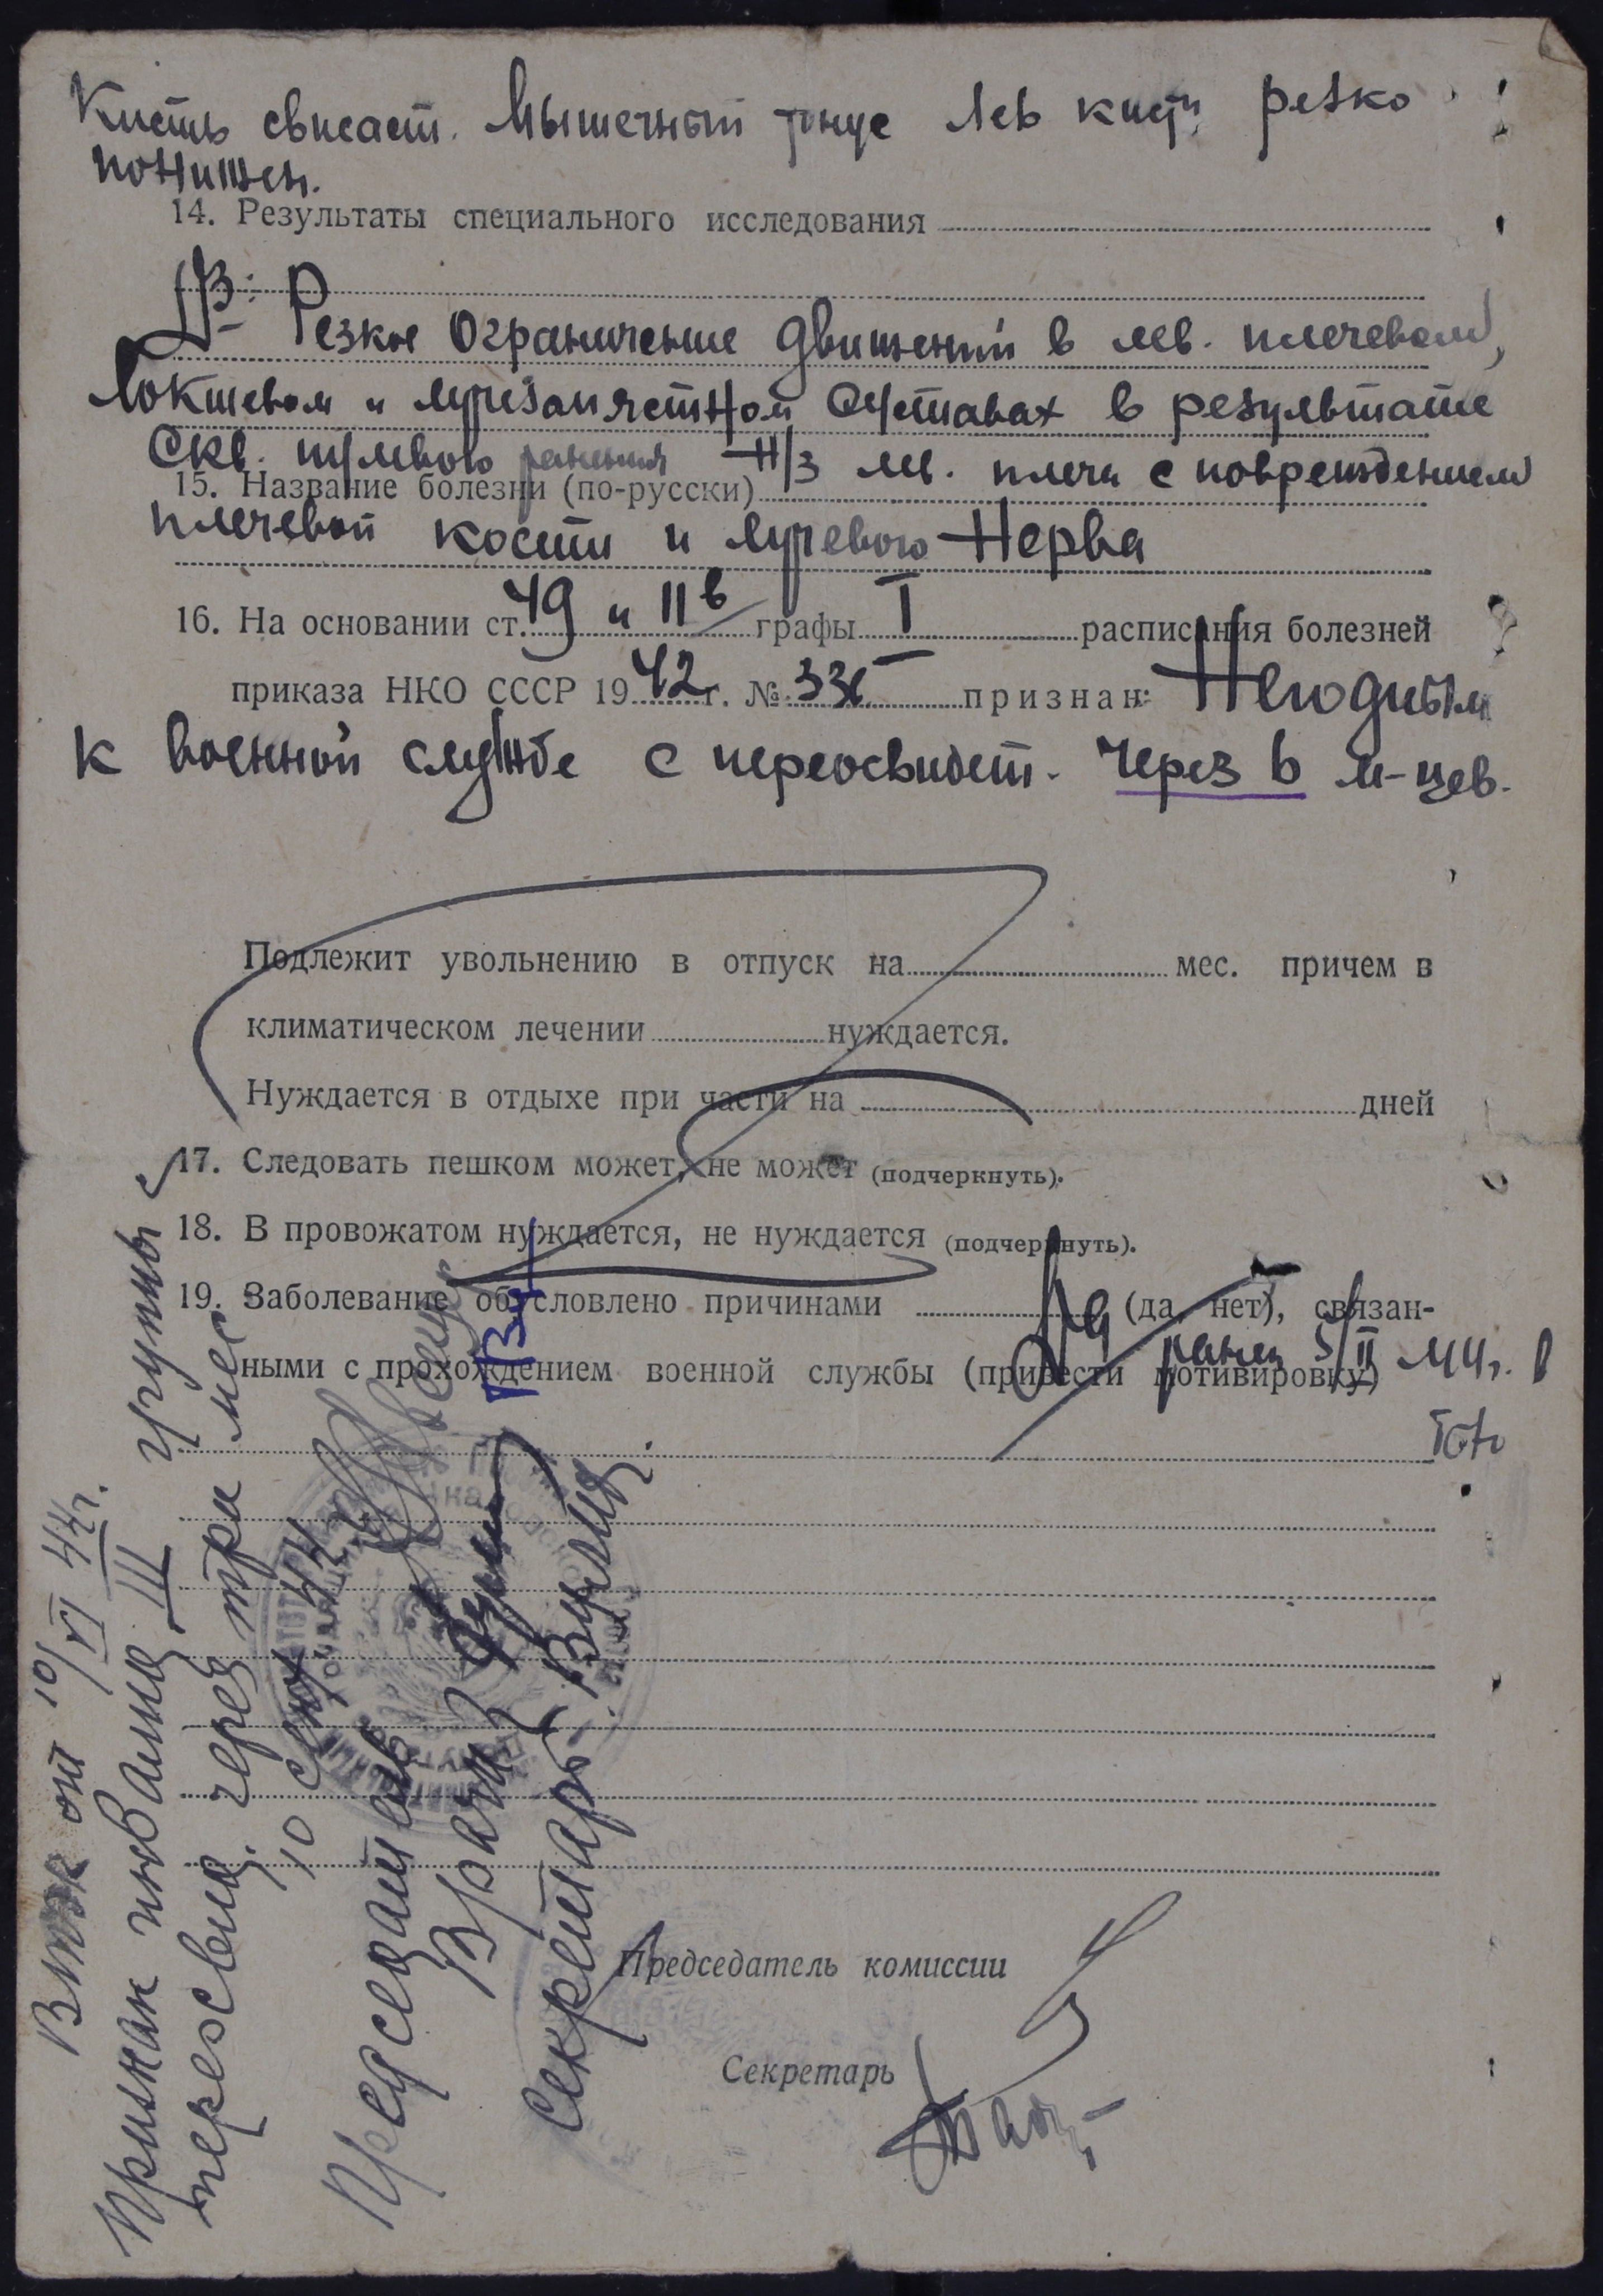 Кисть свисает. Мышечный тонус лев кисти резко
понижен.
14. Результаты специального исследования
Дз: Резкое ограничение движений в лев. плечевом,
локтевом и лучезапястном суставах в результате
Скв. пулевого ранения н/з лев. плеча с повреждением
15. Название болезни (по-русски)
плечевой кости и лучевого нерва
16. На основании ст. 49 и 11в графы I расписания болезней
приказа НКО СССР 1942г. № 336 признан: Негодным
к военной службе с переосвидет. через 6 м-цев.
Подлежит увольнению в отпуск на мес. причем в
климатическом лечении нуждается.
Нуждается в отдыхе при части на дней
17. Следовать пешком может, не может (подчеркнуть).
18. В провожатом нуждается, не нуждается (подчеркнуть).
19. Заболевание обусловлено причинами Да (да, нет), связан-
ными с прохождением военной службы (привести мотивировку) ранен 5/II 44г. в
Председатель комиссии
Секретарь
Втэк от 10/VI 44г.
Признан инвалид III группы с
переосвид. через три мес
10 сент 44
Председатель
Врач
Секретарь